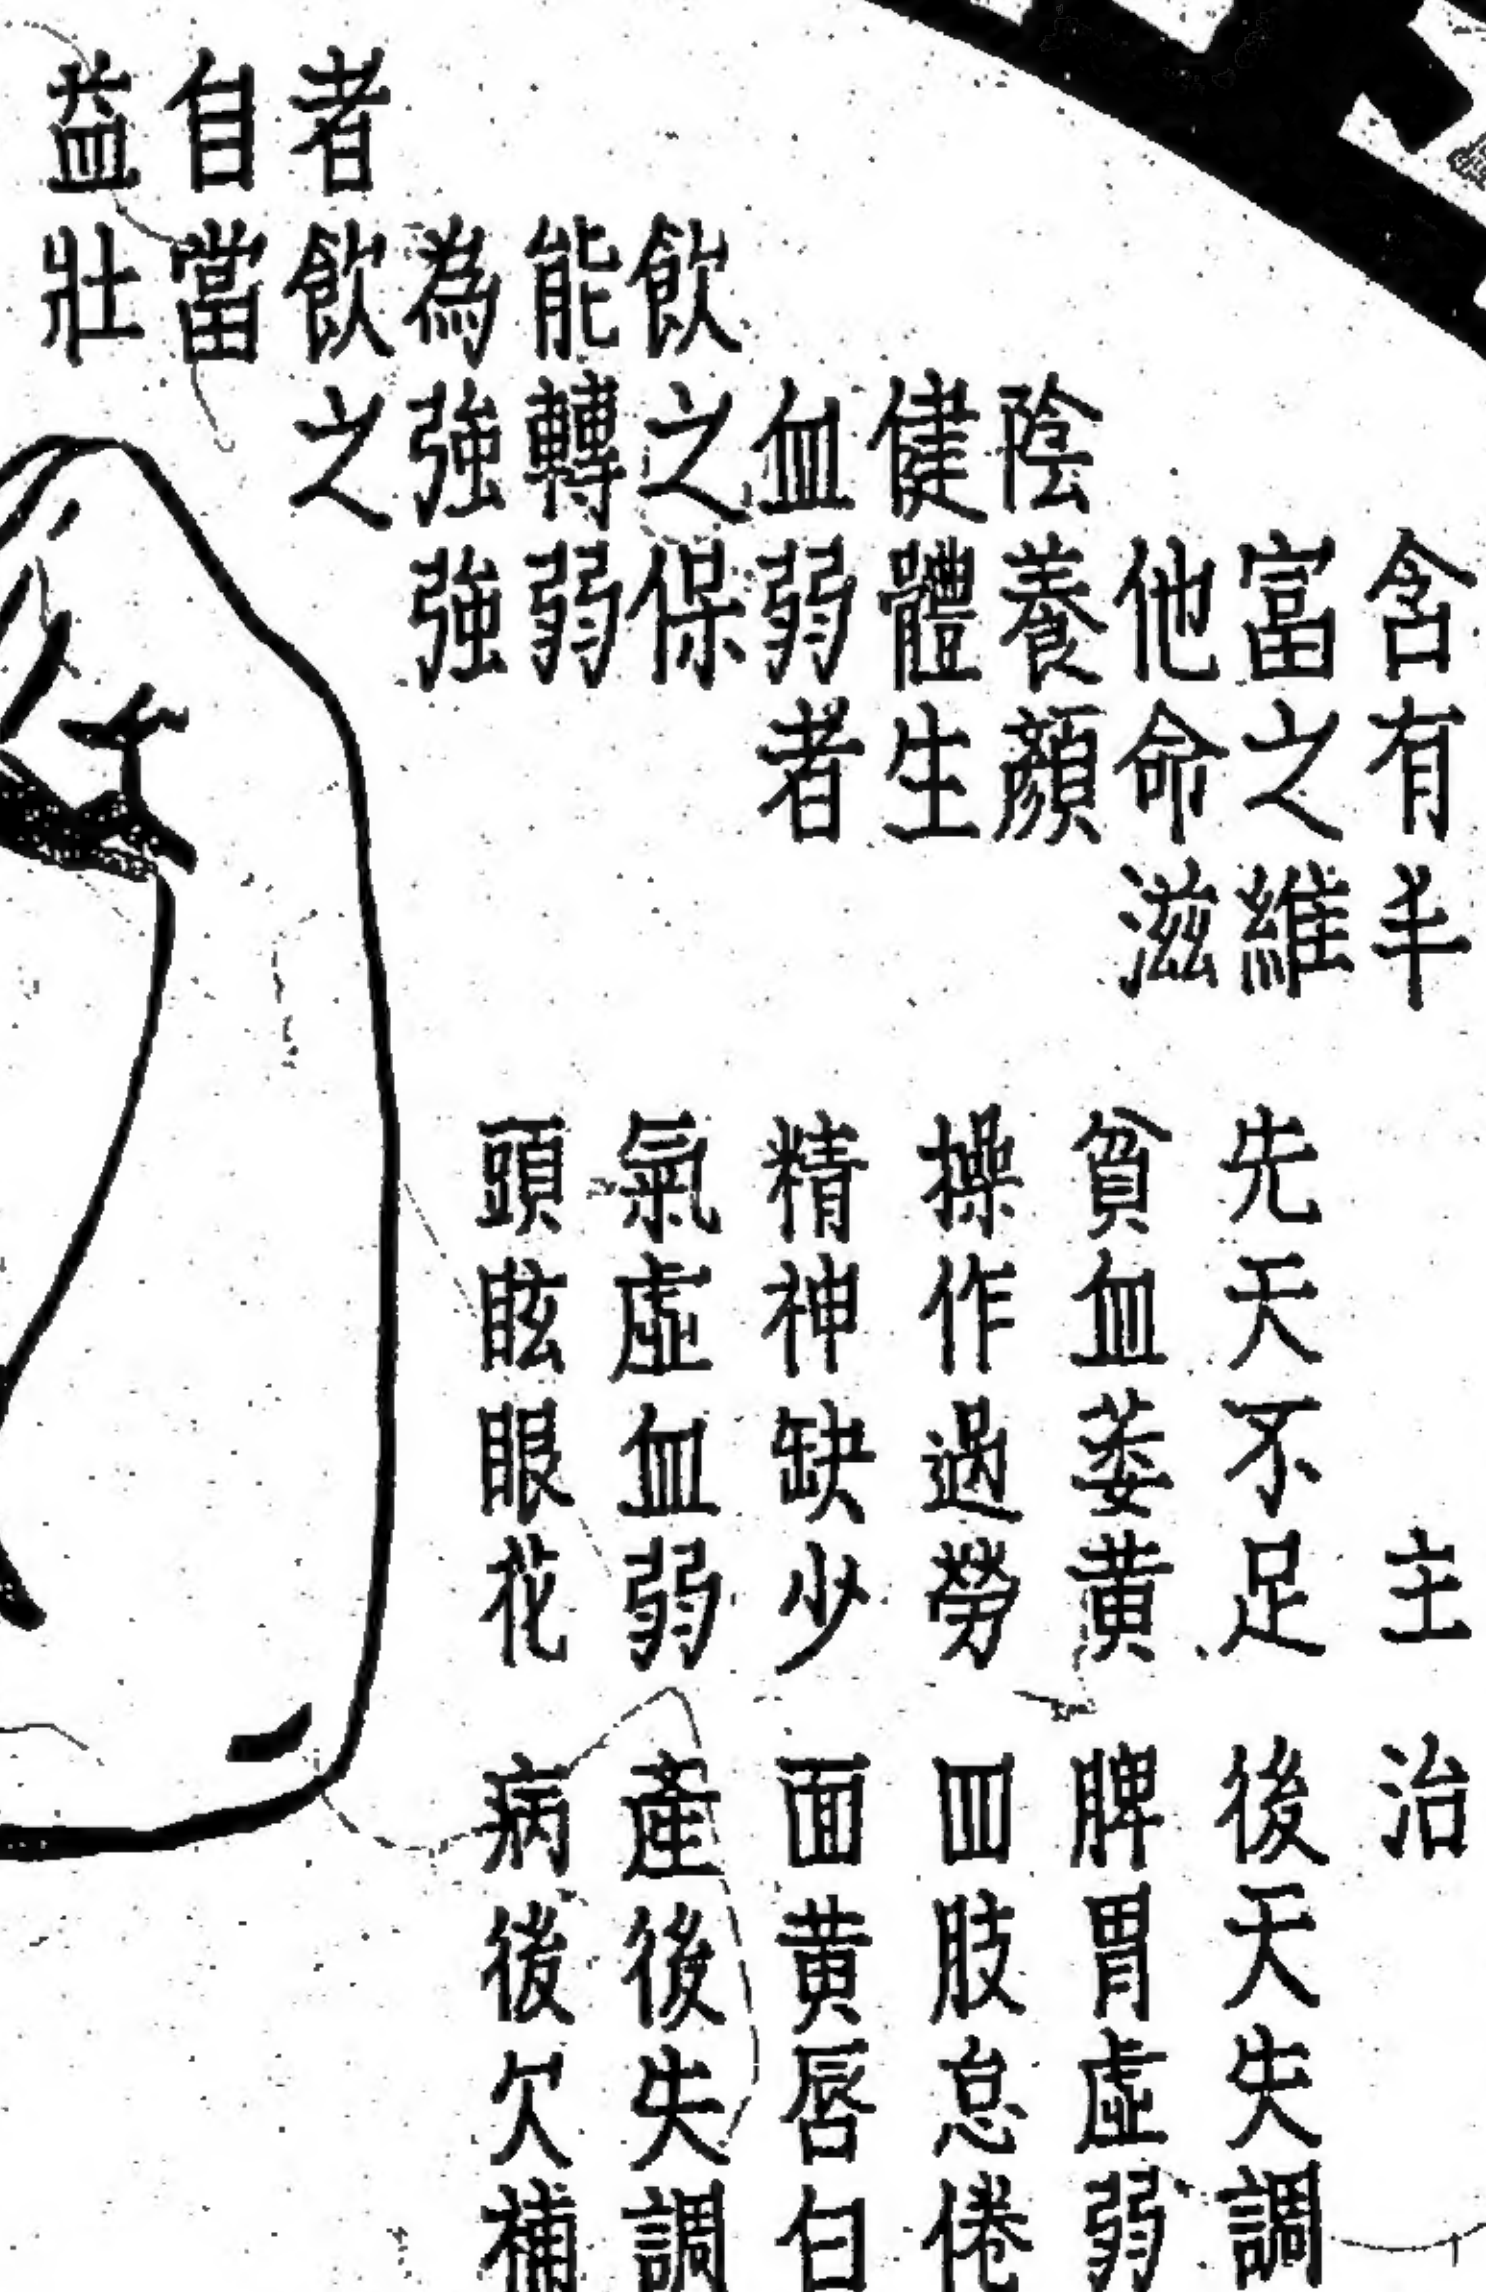 含有羊
富之維
他命滋
陰養顏
健體生
血弱者
飲之保
能轉弱
為強強
者飲之
自當
益壯
主治
先天不足 後天失調
貧血萎黃 脾胃虛弱
操作過勞 四肢怠倦
精神缺少 面黃唇白
氣虛血弱 產後失調
頭眩眼花 病後欠補